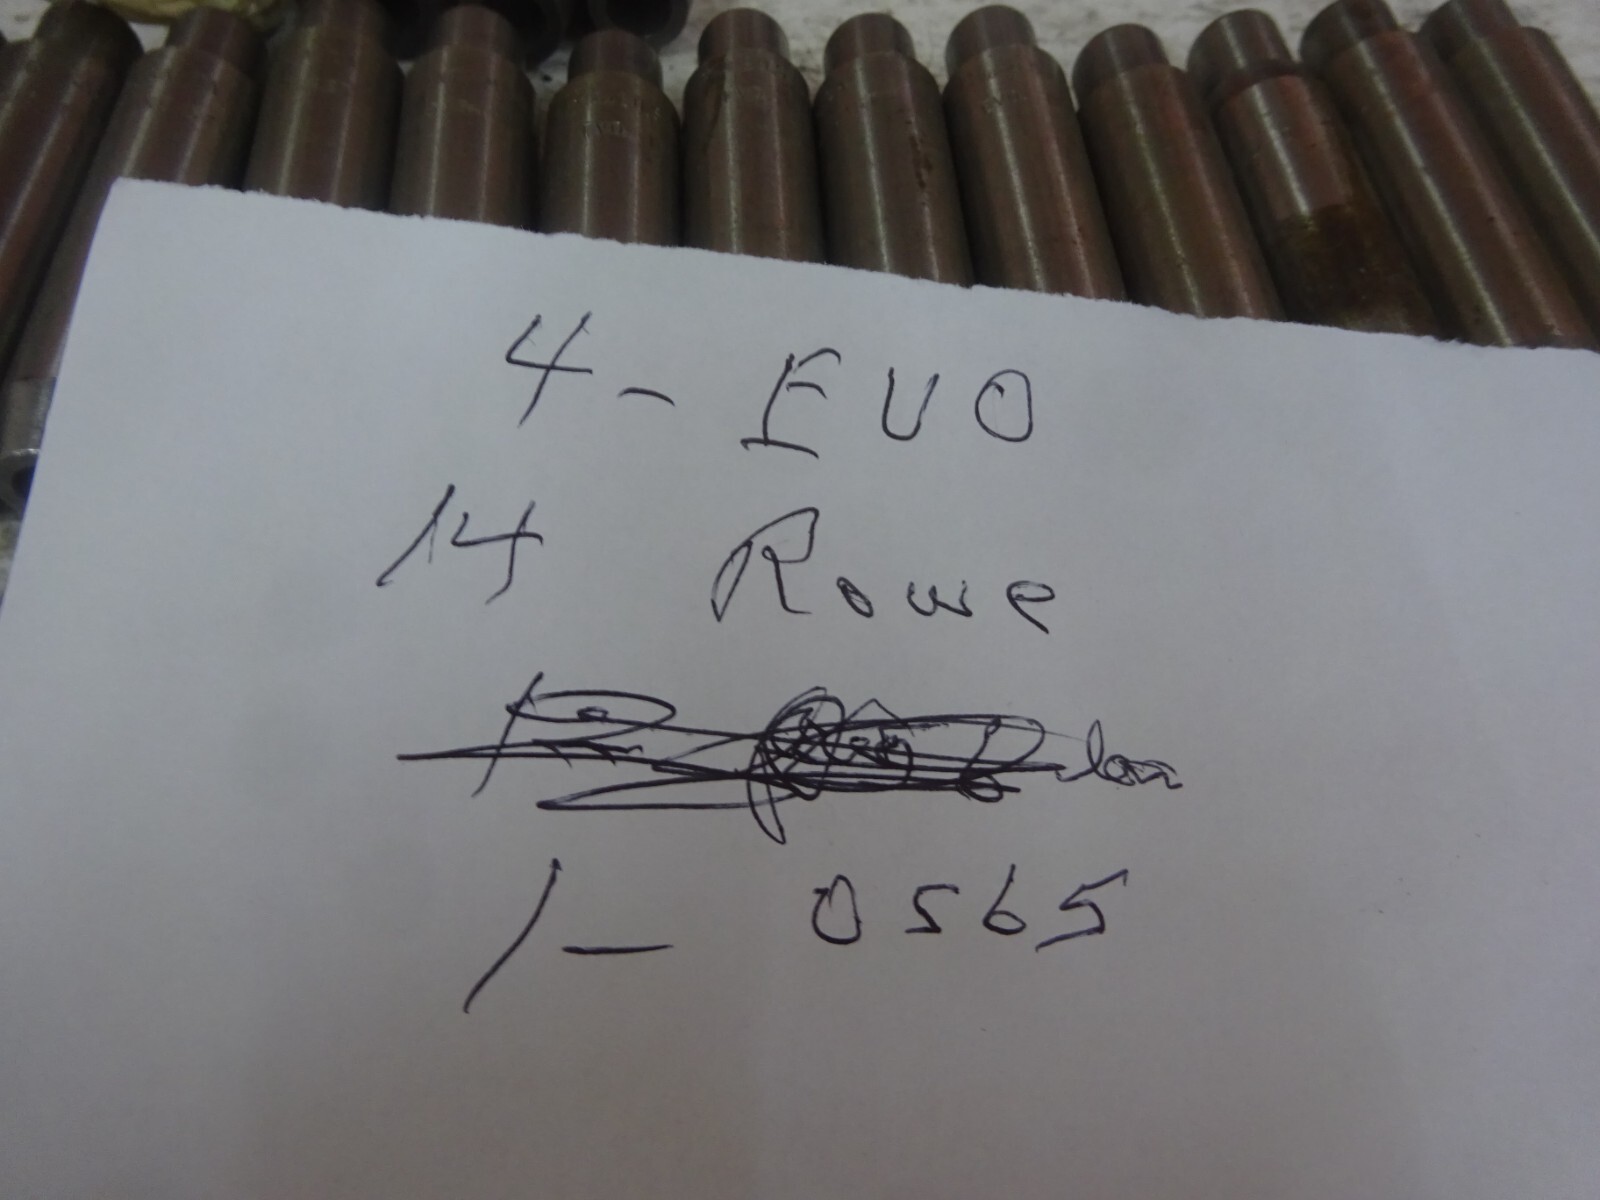 4 - EVO
14 Rowe
1 - 0565